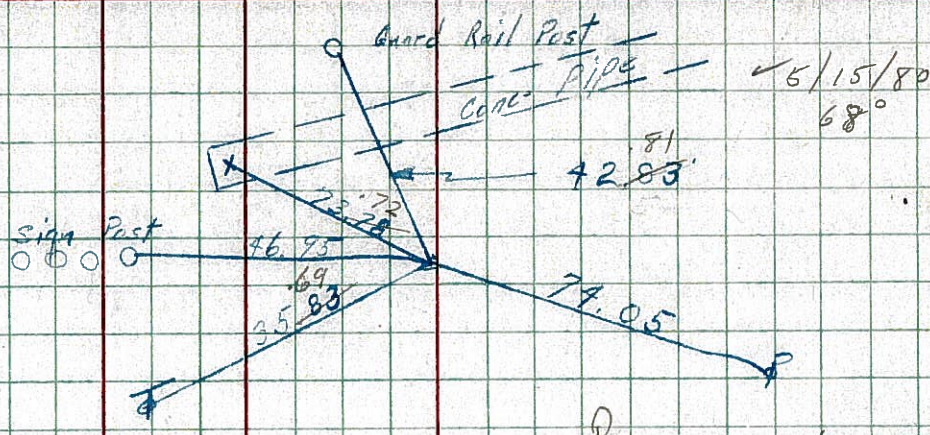 Guard Rail Post
Conc. Pipe
✓ 5/15/80
68°
.81
42.83
.72
23.78
Sign Post
46.95
.69
35.83
74.05